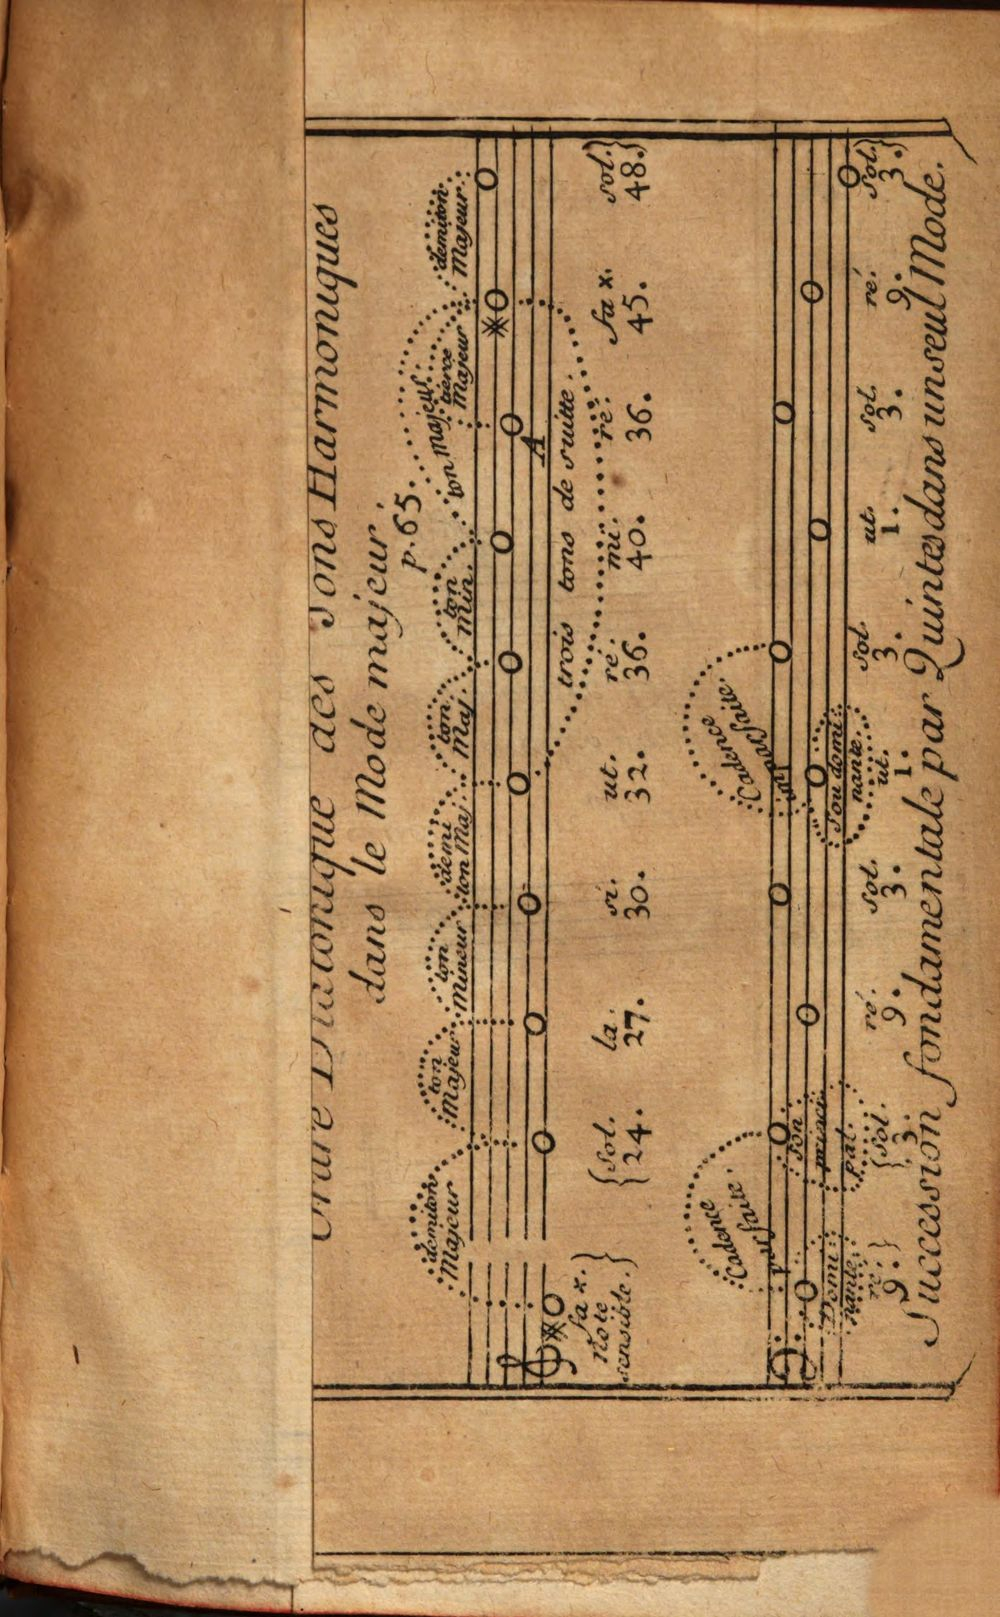 Ordre Diatonique des Sons Harmoniques
dans le Mode majeur.
p. 65.
demiton Majeur
ton Majeur
ton Mineur
demi ton Maj.
ton Maj.
ton Min.
ton Majeur
tierce Majeur
demiton Majeur
A
trois tons de suitte.
fa x. {sol. la. si. ut. ré. mi. ré. fa x. sol.}
Note sensible.} 24. 27. 30. 32. 36. 40. 36. 45. 48.}
Cadence parfaite.
Cadence parfaite.
Dominante
Son principal.
Soudominante.
ré. } {sol. ré. sol. ut. sol. ut. sol. ré. sol.}
9. } 3. 9. 3. 1. 3. 1. 3. 9. 3.}
Succession fondamentale par Quintes dans un seul Mode.